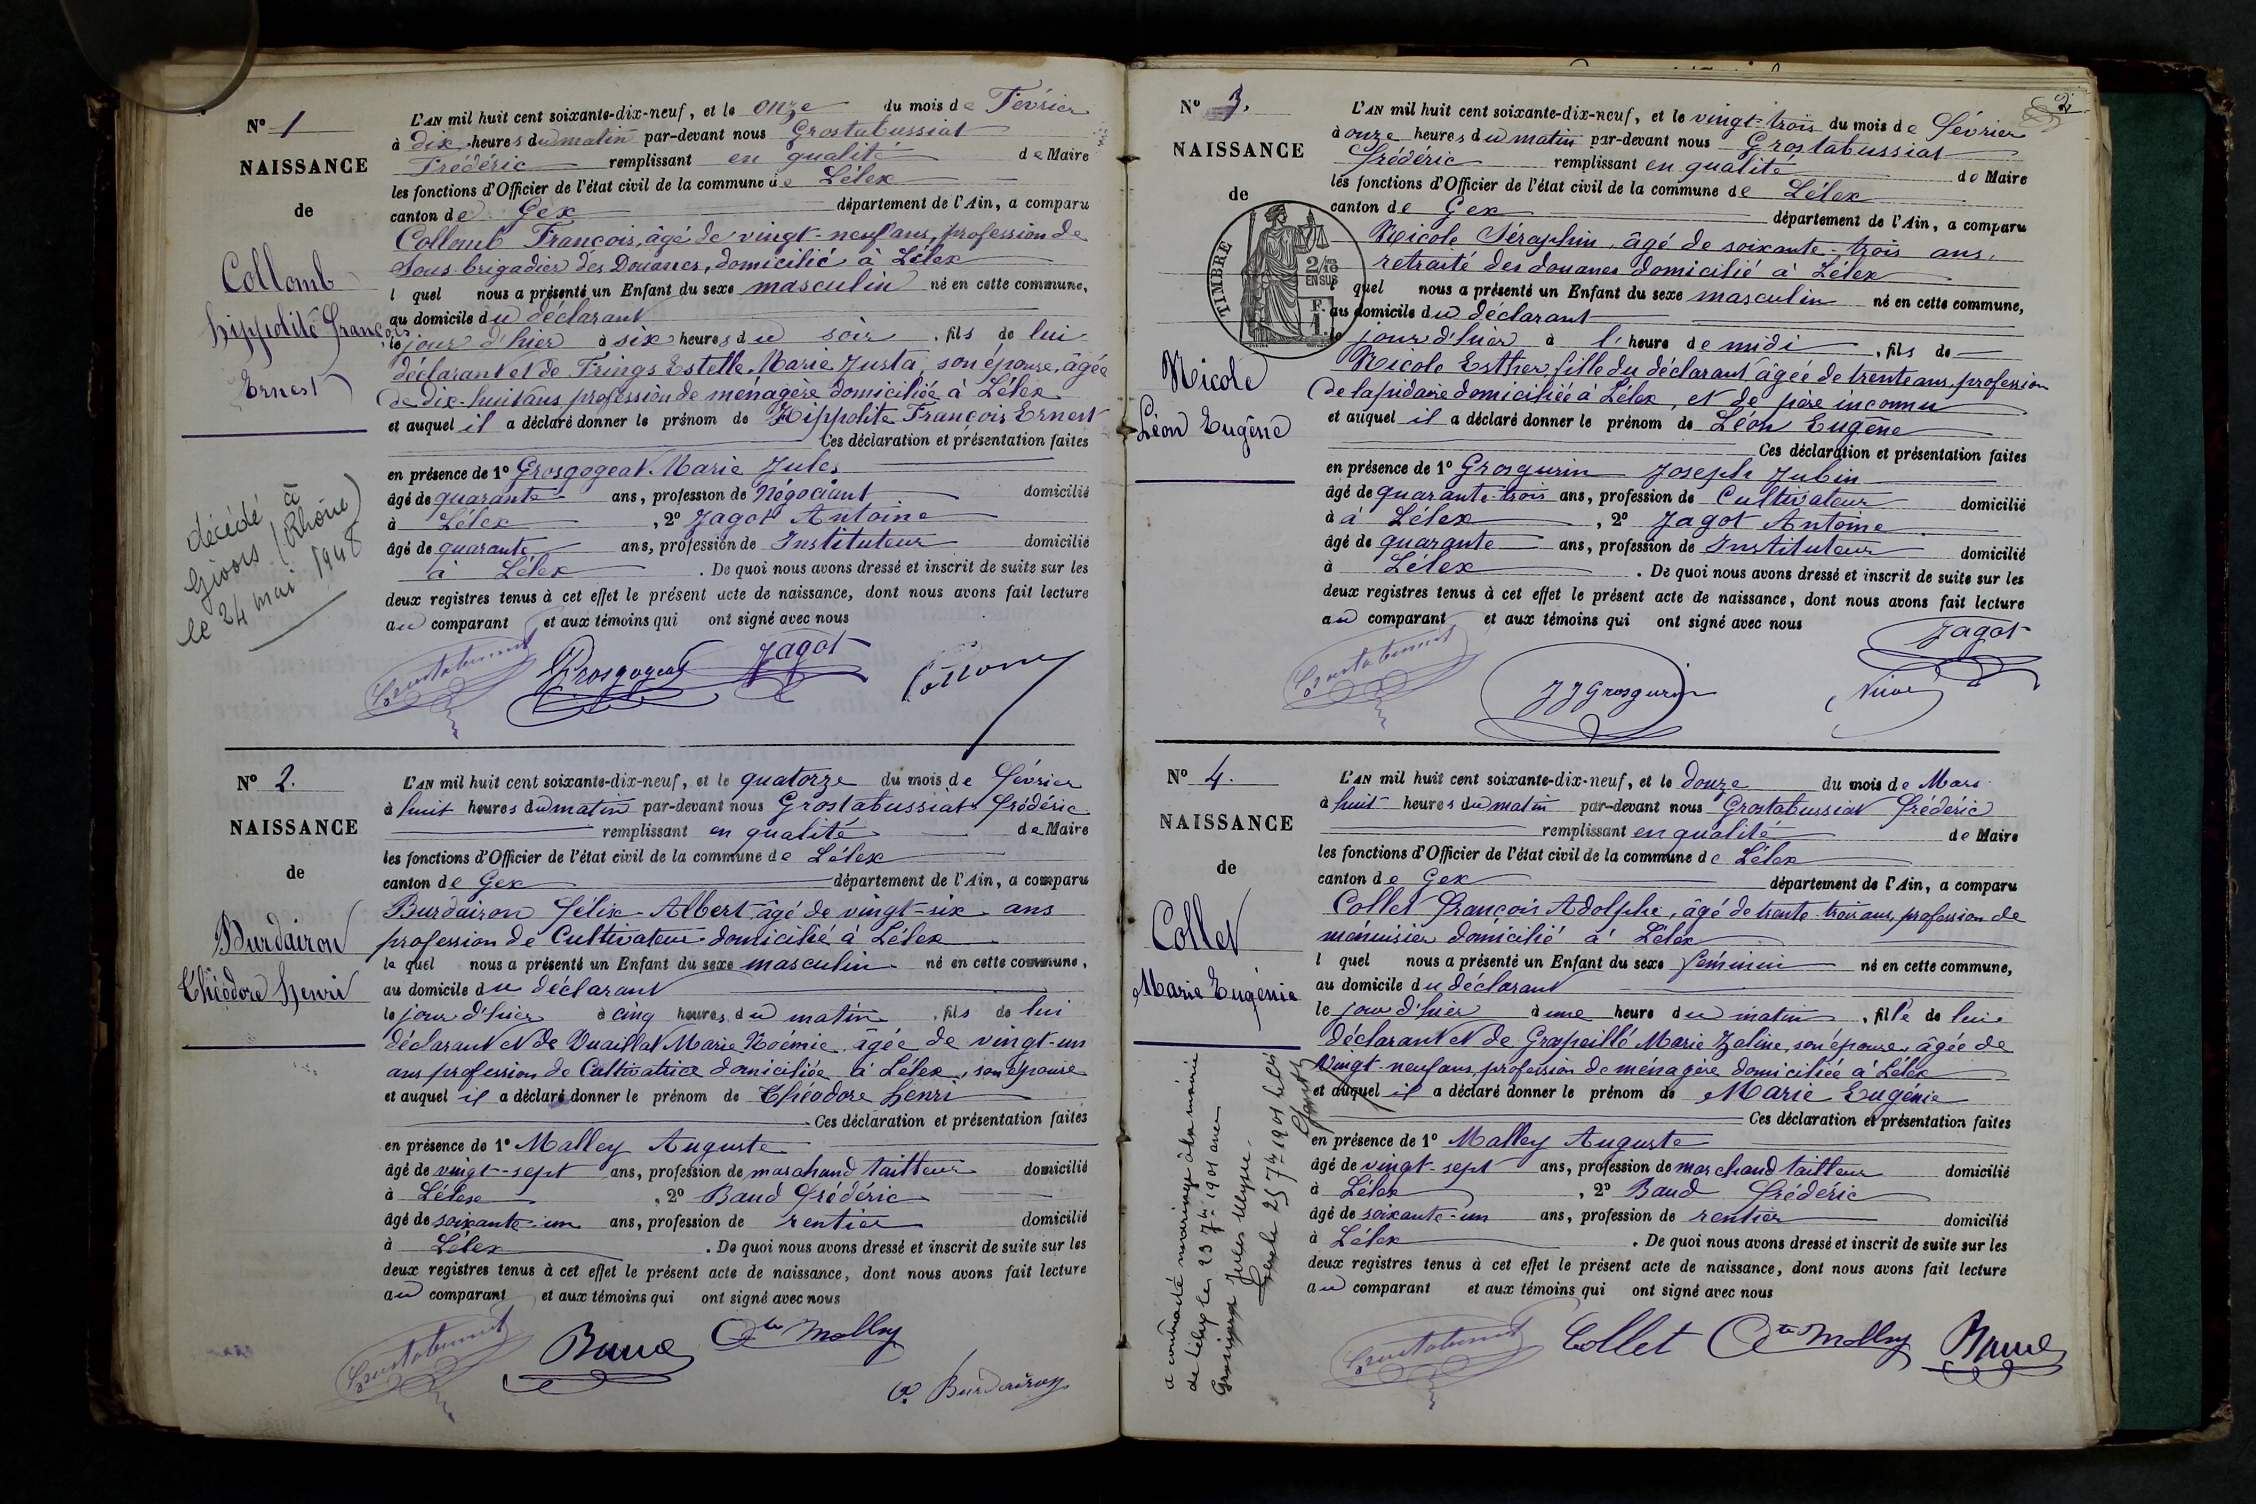 N° 1
NAISSANCE
de
Collomb
hippolité François
Ernest
décédé à
Givors (Rhône)
le 24 mai 1948
L'AN mil huit cent soixante-dix-neuf, et le onze du mois de Février
à dix heures du matin par-devant nous Grostabussiat
Frédéric remplissant en qualité de Maire
les fonctions d'Officier de l'état civil de la commune de Lélex
canton de Gex département de l'Ain, a comparu
Collomb François, âgé de vingt-neuf ans, profession de
Sous-brigadier des Douanes, domicilié à Lélex
l quel nous a présenté un Enfant du sexe masculin né en cette commune,
au domicile du déclarant
le jour d'hier à six heures du soir, fils de lui
déclarant et de Frings Estelle Marie Justa, son épouse, âgée
de dix-huit ans profession de ménagère domiciliée à Lélex
et auquel il a déclaré donner le prénom de Hippolite François Ernest
Ces déclaration et présentation faites
en présence de 1° Grosgogeat Marie Jules
âgé de quarante ans, profession de Négociant domicilié
à Lélex, 2° Jagot Antoine
âgé de quarante ans, profession de Instituteur domicilié
à Lélex. De quoi nous avons dressé et inscrit de suite sur les
deux registres tenus à cet effet le présent acte de naissance, dont nous avons fait lecture
au comparant et aux témoins qui ont signé avec nous
Grostabussiat Grosgogeat Jagot
N° 2.
NAISSANCE
de
Burdairon
Théodore henri
L'AN mil huit cent soixante-dix-neuf, et le quatorze du mois de Février
à huit heures du matin par-devant nous Grostabussiat Frédéric
remplissant en qualité de Maire
les fonctions d'Officier de l'état civil de la commune de Lélex
canton de Gex département de l'Ain, a comparu
Burdairon Félix-Albert âgé de vingt-six ans
profession de Cultivateur domicilié à Lélex
le quel nous a présenté un Enfant du sexe masculin né en cette commune,
au domicile du déclarant
le jour d'hier à cinq heures du matin, fils de lui
déclarant et de Vuaillat Marie Noémie âgée de vingt-un
ans profession de Cultivatrice domiciliée à Lélex, son épouse
et auquel il a déclaré donner le prénom de Théodore henri
Ces déclaration et présentation faites
en présence de 1° Malley Auguste
âgé de vingt-sept ans, profession de marchand tailleur domicilié
à Lélex, 2° Baud Frédéric
âgé de soixante-un ans, profession de rentier domicilié
à Lélex. De quoi nous avons dressé et inscrit de suite sur les
deux registres tenus à cet effet le présent acte de naissance, dont nous avons fait lecture
au comparant et aux témoins qui ont signé avec nous
Grostabussiat Baud Ate Malley
Burdairon
2
N° 3.
NAISSANCE
de
TIMBRE
2/10
EN SUS
F.
1.
Nicole
Léon Eugène
L'AN mil huit cent soixante-dix-neuf, et le vingt-trois du mois de Février
à onze heures du matin par-devant nous Grostabussiat
Frédéric remplissant en qualité de Maire
les fonctions d'Officier de l'état civil de la commune de Lélex
canton de Gex département de l'Ain, a comparu
Nicole Séraphin, âgé de soixante-trois ans,
retraité des douanes domicilié à Lélex
quel nous a présenté un Enfant du sexe masculin né en cette commune,
au domicile du déclarant
jour d'hier à l' heure de midi, fils de
Nicole Esther fille du déclarant âgée de trente ans, profession
de lapidaire domiciliée à Lélex, et de père inconnu
et auquel il a déclaré donner le prénom de Léon Eugène
Ces déclaration et présentation faites
en présence de 1° Grosgurin Joseph Jubin
âgé de quarante-trois ans, profession de Cultivateur domicilié
à à Lélex, 2° Jagot Antoine
âgé de quarante ans, profession de Instituteur domicilié
à Lélex. De quoi nous avons dressé et inscrit de suite sur les
deux registres tenus à cet effet le présent acte de naissance, dont nous avons fait lecture
au comparant et aux témoins qui ont signé avec nous
Grostabussiat JJ Grosgurin Jagot
N° 4.
NAISSANCE
de
Collet
Marie Eugénie
a contracté mariage à la mairie
de Lélex le 23 7bre 1901 avec
Jules Ulysse
L'AN mil huit cent soixante-dix-neuf, et le douze du mois de Mars
à huit heures du matin par-devant nous Grostabussiat Frédéric
remplissant en qualité de Maire
les fonctions d'Officier de l'état civil de la commune de Lélex
canton de Gex département de l'Ain, a comparu
Collet François Adolphe, âgé de trente-trois ans, profession de
menuisier domicilié à Lélex
l quel nous a présenté un Enfant du sexe féminin né en cette commune,
au domicile du déclarant
le jour d'hier à une heure du matin, fille de lui
déclarant et de Grospeillé Marie Zéline, son épouse, âgée de
Vingt-neuf ans, profession de ménagère domiciliée à Lélex
et auquel il a déclaré donner le prénom de Marie Eugénie
Ces déclaration et présentation faites
en présence de 1° Malley Auguste
âgé de vingt-sept ans, profession de marchand tailleur domicilié
à Lélex, 2° Baud Frédéric
âgé de soixante-un ans, profession de rentier domicilié
à Lélex. De quoi nous avons dressé et inscrit de suite sur les
deux registres tenus à cet effet le présent acte de naissance, dont nous avons fait lecture
au comparant et aux témoins qui ont signé avec nous
Grostabussiat Collet Ate Malley Baud